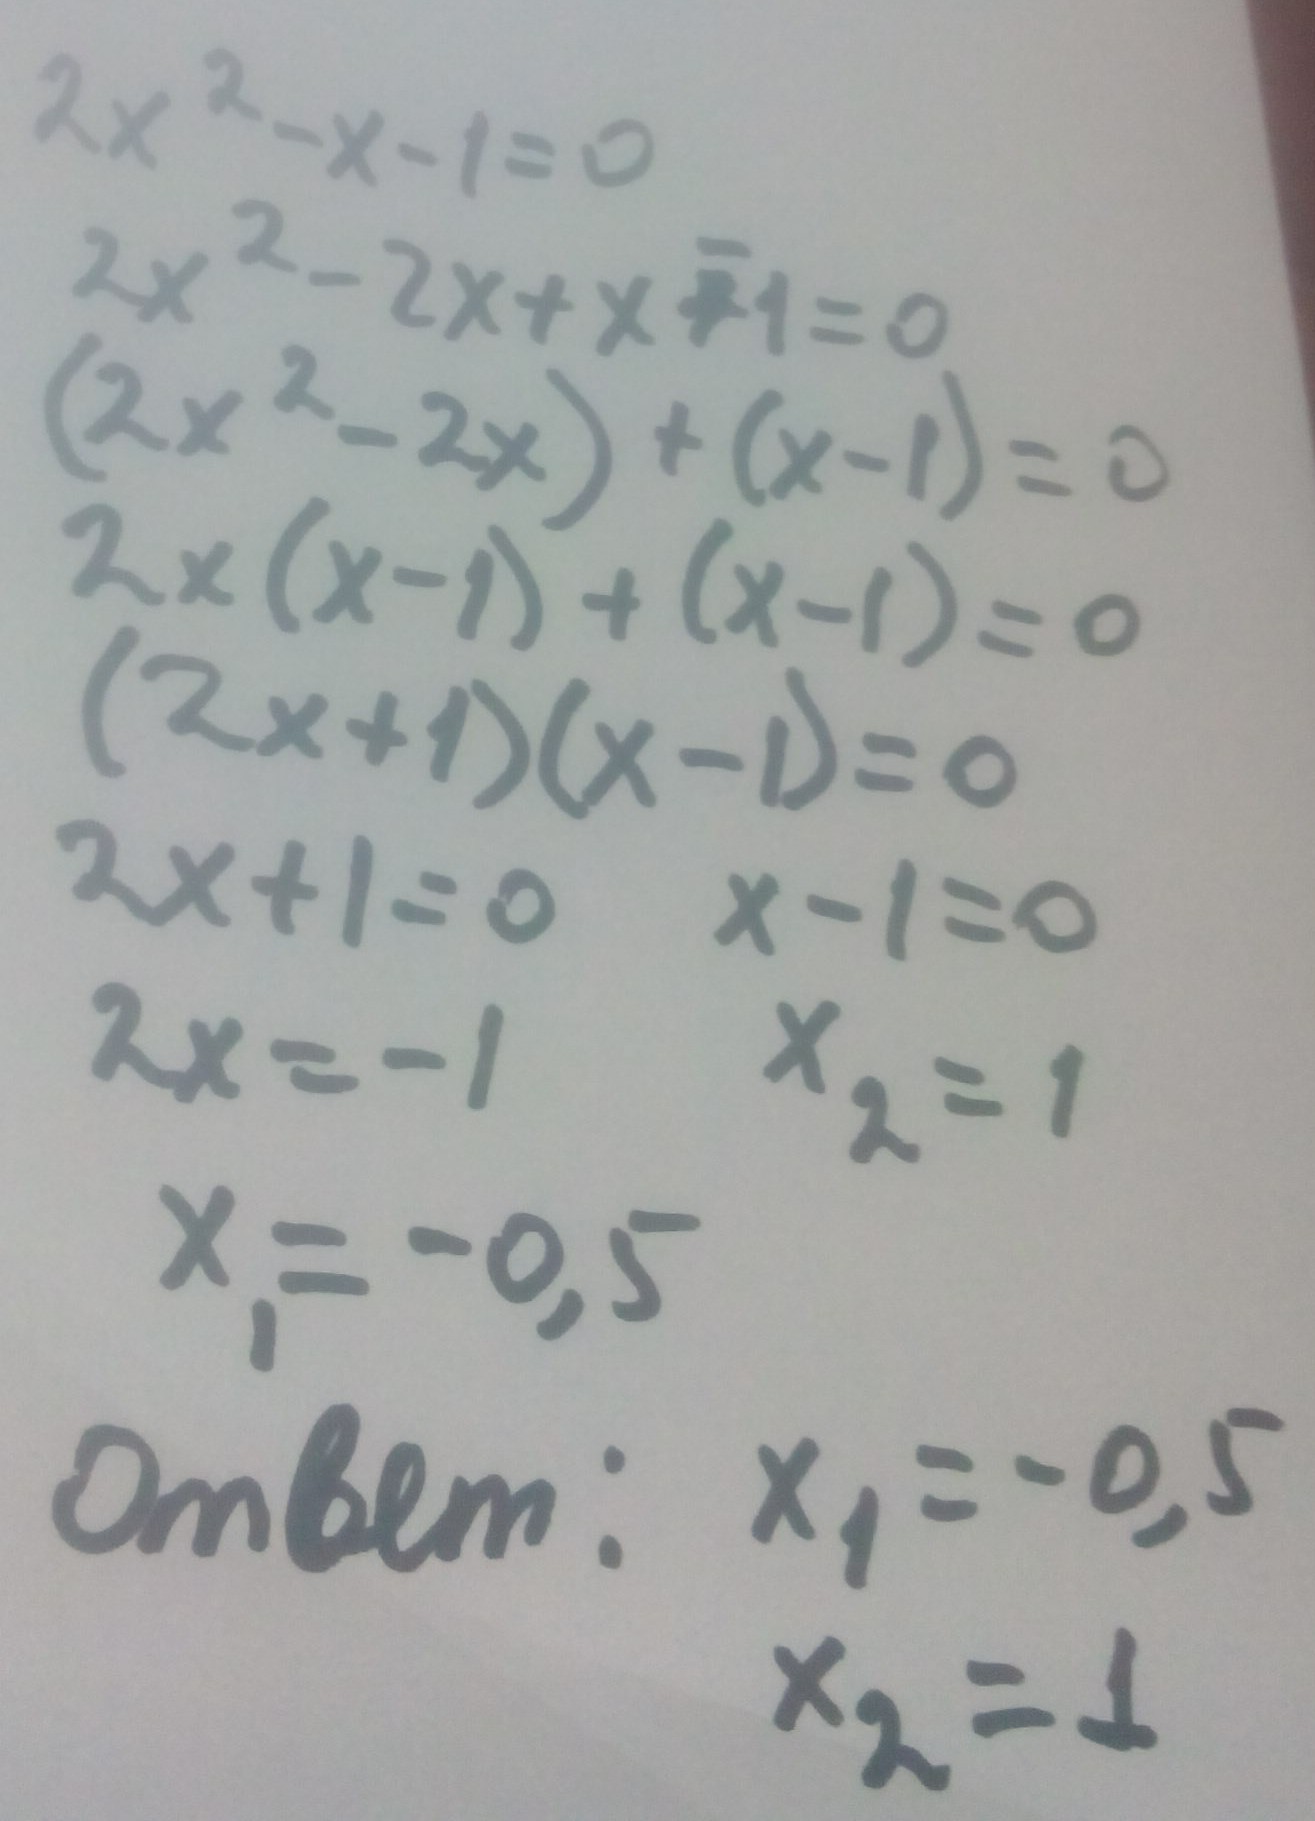 2x² - x - 1 = 0
2x² - 2x + x - 1 = 0
(2x² - 2x) + (x - 1) = 0
2x(x - 1) + (x - 1) = 0
(2x + 1)(x - 1) = 0
2x + 1 = 0 x - 1 = 0
2x = -1 x₂ = 1
x₁ = -0,5
Ответ: x₁ = -0,5
x₂ = 1